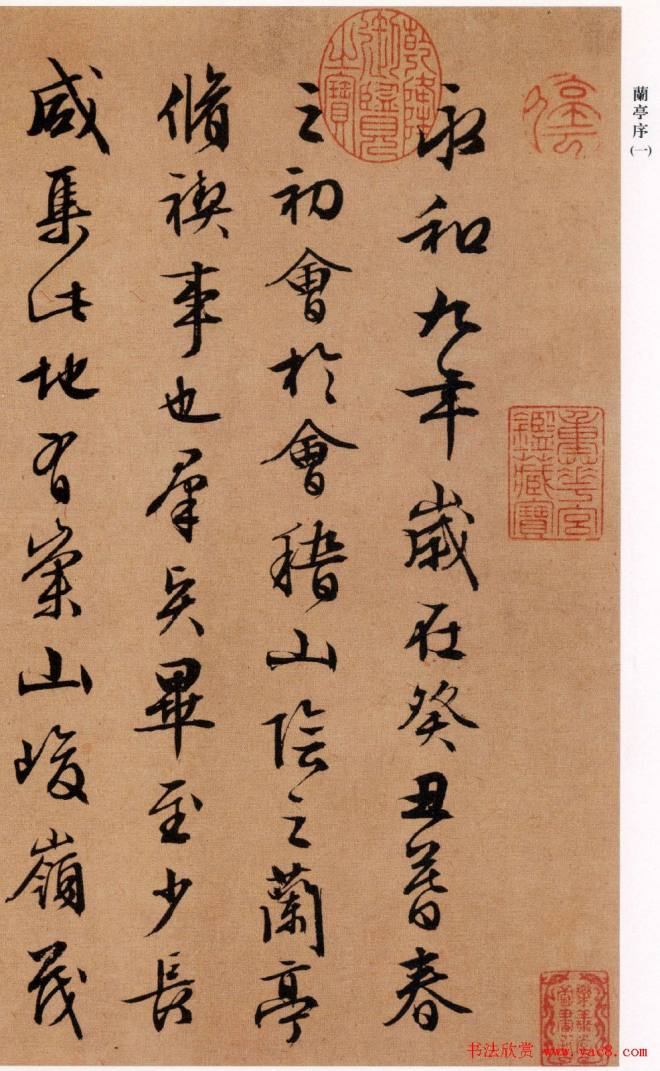 蘭亭序(一)
永和九年歲在癸丑暮春
之初會於會稽山陰之蘭亭
脩禊事也羣賢畢至少長
咸集此地有崇山峻嶺茂
乾隆御覽之寶
重華宮鑑藏寶
书法欣赏 www.yac8.com